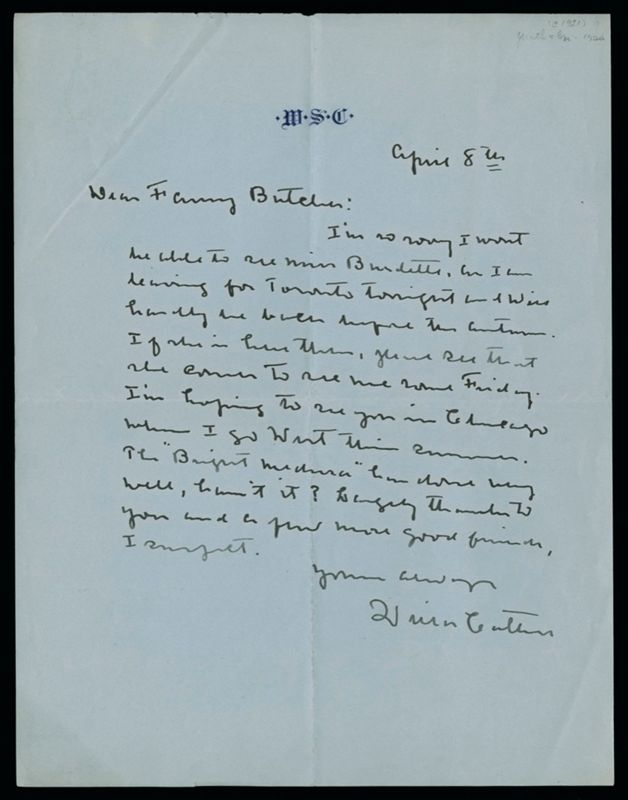 ·W·S·C·
April 8th
Dear Fanny Butcher:
I'm so sorry I wont
be able to see Miss Burdette, as I am
leaving for Toronto tonight and will
hardly be back before the autumn.
If she is here then, please see that
she comes to see me some Friday.
I'm hoping to see you in Chicago
when I go West this summer.
The "Bright Medusa" has done very
well, hasn't it? Largely thanks to
you and a few more good friends,
I suspect.
Yours always
Willa Cather